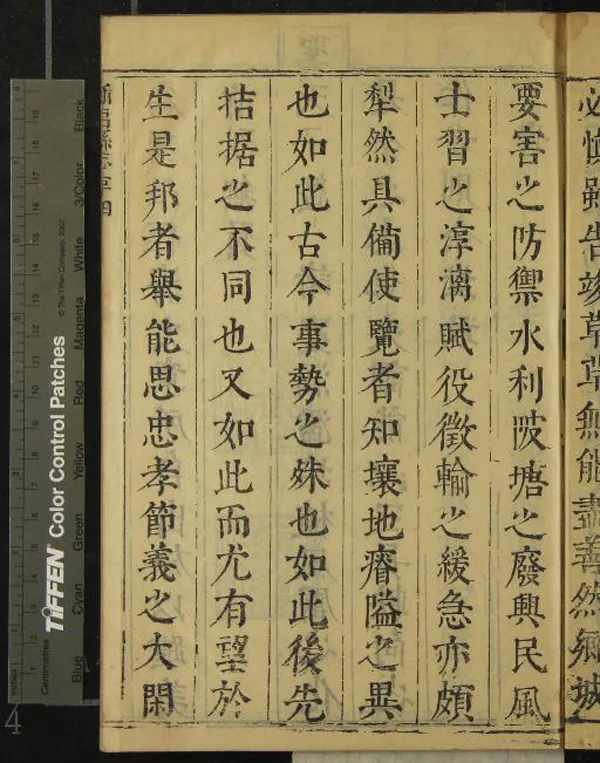 必慎雖告竣草草無能盡善然郷城
要害之防禦水利陂塘之廢興民風
士習之淳漓賦役徵輸之緩急亦頗
犁然具備使覽者知壤地瘠隘之異
也如此古今事勢之殊也如此後先
拮据之不同也又如此而尤有望於
生是邦者舉能思忠孝節義之大閑
TIFFEN Color Control Patches
© The Tiffen Company, 2007
Blue Cyan Green Yellow Red Magenta White 3/Color Black
Inches
Centimetres
4